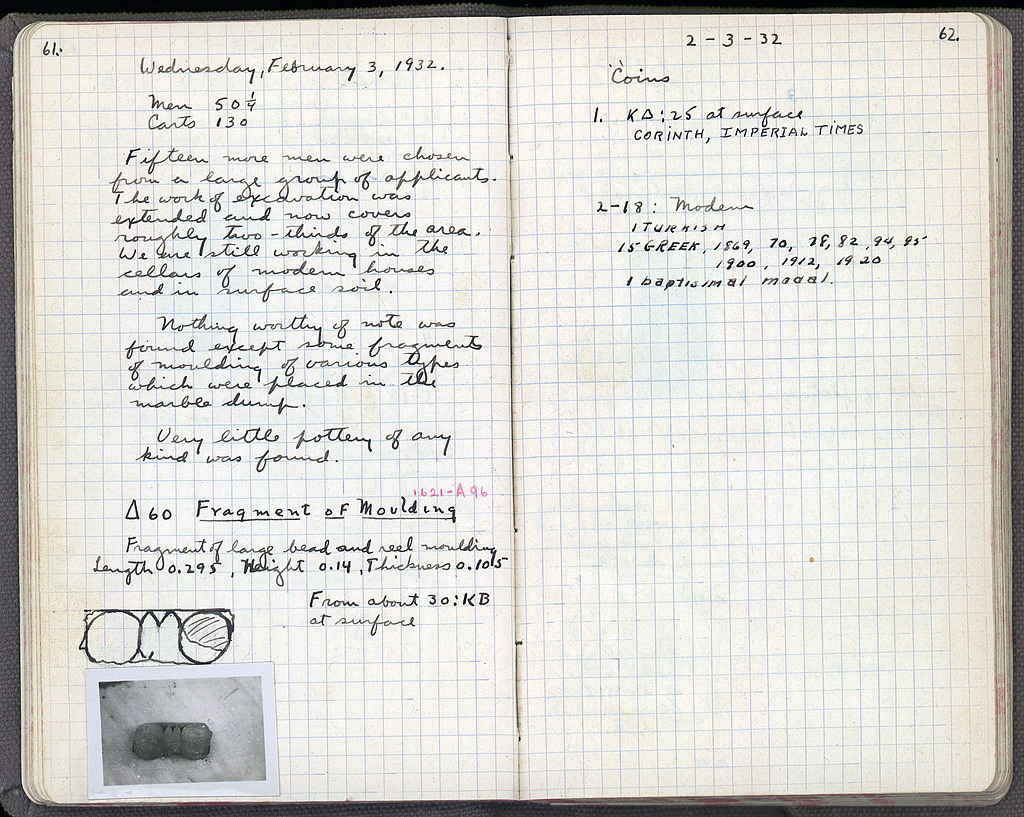 61.
Wednesday, February 3, 1932.
Men 50 1/4
Carts 130
Fifteen more men were chosen
from a large group of applicants.
The work of excavation was
extended and now covers
roughly two-thirds of the area.
We are still working in the
cellars of modern houses
and in surface soil.
Nothing worthy of note was
found except some fragments
of moulding of various types
which were placed in the
marble dump.
Very little pottery of any
kind was found.
1621-A96
Δ60 Fragment of Moulding
Fragment of large bead and reel moulding
Length 0.295, Height 0.14, Thickness 0.105
From about 30:KB
at surface
62.
2-3-32
Coins
1. KΔ:25 at surface
CORINTH, IMPERIAL TIMES
2-18: Modern
1 TURKISH
15 GREEK, 1869, 70, 78, 82, 94, 95
1900, 1912, 1920
1 baptisimal medal.